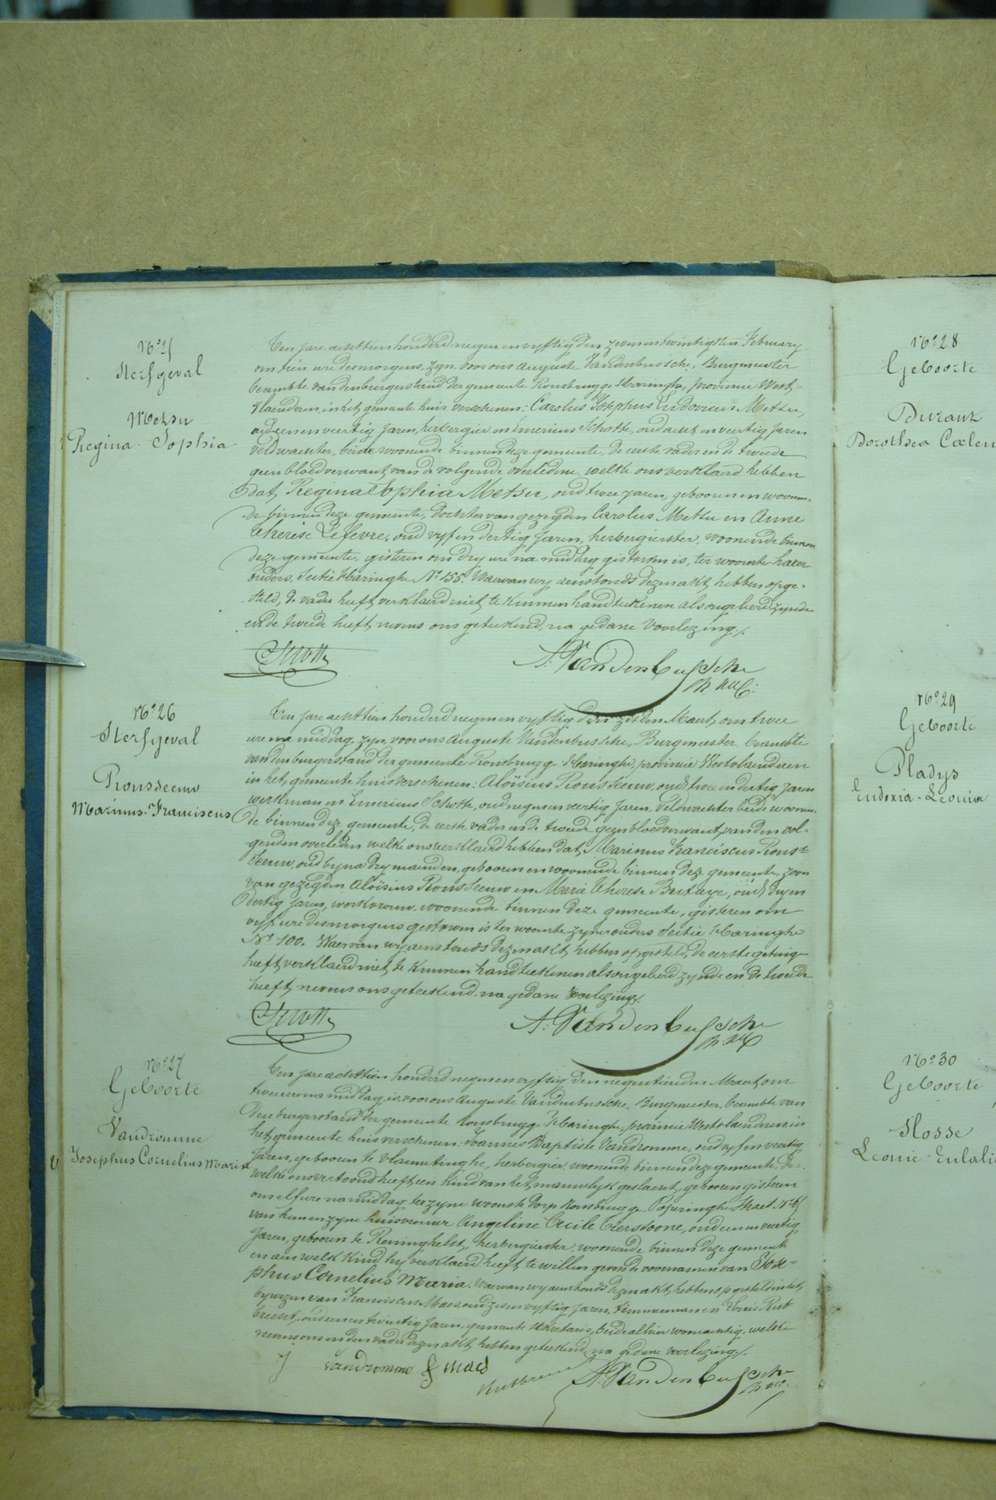 Nº 25
Sterfgeval
Metsu
Regina Sophia
Ten jare achttien honderd negen en vyftig den zeven en twintigsten February
om tien ure des morgens, zyn voor ons Auguste Vandenbussche, Burgmeester
beambte van den burgerstand der gemeente Rousbrugge Haringhe, provincie West-
Vlaenderen, in het gemeente huis verschenen: Carolus Josephus Ludovicus Metsu,
oud een en veertig Jaren, herbergier en Emericus Schotte, oud acht en veertig Jaren
veldwachter, beide woonende binnen deze gemeente, de eerste vader en de tweede
geen bloedverwant van de volgende overledene, welke ons verklaerd hebben
dat, Regina Sophia Metsu, oud twee Jaren, geboren en woonen-
de binnen deze gemeente, dochter van gezegden Carolus Metsu en Anne
Therese Lefevre, oud vyf en dertig Jaren, herbergierster, woonende binnen
deze gemeente, gisteren om dry ure na middag gestorven is, ter woonste haer
ouders, Sectie Haringhe Nº 155. Waervan wy aenstonds deze nakt hebben opge-
steld, de vader heeft verklaerd niet te kunnen handteekenen als ongeleerd zynde
en de tweede heeft nevens ons geteekend, na gedane voorlezing.
Schotte
A. Vandenbussche
Nº 26
Sterfgeval
Rousseeuw
Marinus Franciscus
Ten jare achttien honderd negen en vyftig den zesden Maert, om twee
ure na middag, zyn voor ons Auguste Vandenbussche, Burgmeester, beambte
van den burgerstand der gemeente Rousbrugge Haringhe, provincie Westvlaenderen
in het gemeente huis verschenen: Aloïsius Rousseeuw, oud twee en dertig Jaren
werkman en Emericus Schotte, oud negen en veertig Jaren, veldwachter beide woonen-
de binnen deze gemeente, de eerste vader en de tweede geen bloedverwant van den vol-
genden overleden welke ons verklaerd hebben dat, Marinus Franciscus Rous-
seeuw, oud byna dry maenden, geboren en woonende binnen deze gemeente, zoon
van gezegden Aloïsius Rousseeuw en Marie Therese oud dry en
dertig Jaren, werkvrouw, woonende binnen deze gemeente, gisteren om
vyf ure des morgens gestorven is ter woonste zyner ouders Sectie Haringhe
Nº 100. Waervan wy aenstonds deze nakt hebben opgesteld, de eerste getuige
heeft verklaerd niet te kunnen handteekenen als ongeleerd zynde en de tweede
heeft nevens ons geteekend na gedane voorlezing.
Schotte
A. Vandenbussche
Nº 27
Geboorte
Vandromme
Josephus Cornelius Maria
Ten jare achttien honderd negen en vyftig den negentienden Maert, om
twee ure na middag, is voor ons Auguste Vandenbussche, Burgmeester, beambte van
den burgerstand der gemeente Rousbrugge Haringhe, provincie Westvlaenderen in
het gemeente huis verschenen: Joannes Baptiste Vandromme, oud vyf en veertig
Jaren, geboren te Vlamertinghe, herbergier, woonende binnen deze gemeente, de-
welke ons vertoond heeft een kind van het mannelyk geslacht, geboren gisteren
om elf ure na middag, ter zyne woonste dorp Rousbrugge Poperinghe Straet
van hem en zyne huisvrouw Angeline Cecile oud een en veertig
Jaren, geboren te Reninghelst, herbergierster, woonende binnen deze gemeente
en aen welk kind hy verklaerd heeft te willen geven de voornamen van Jose-
phus Cornelius Maria. Waervan wy aenstonds deze nakt hebben opgesteld
bywezen van Franciscus Maes, oud zes en vyftig Jaren, en
oud een en twintig Jaren, gemeente secretaris, beide alhier woonachtig, welke
nevens ons en den vader deze nakt hebben geteekend, na gedane voorlezing.
J Vandromme F Maes
A. Vandenbussche
Nº 28
Geboorte
Durant
Dorothea
Nº 29
Geboorte
Pladys
Eudoxia Leonia
Nº 30
Geboorte
Hosse
Leonie Eulalie